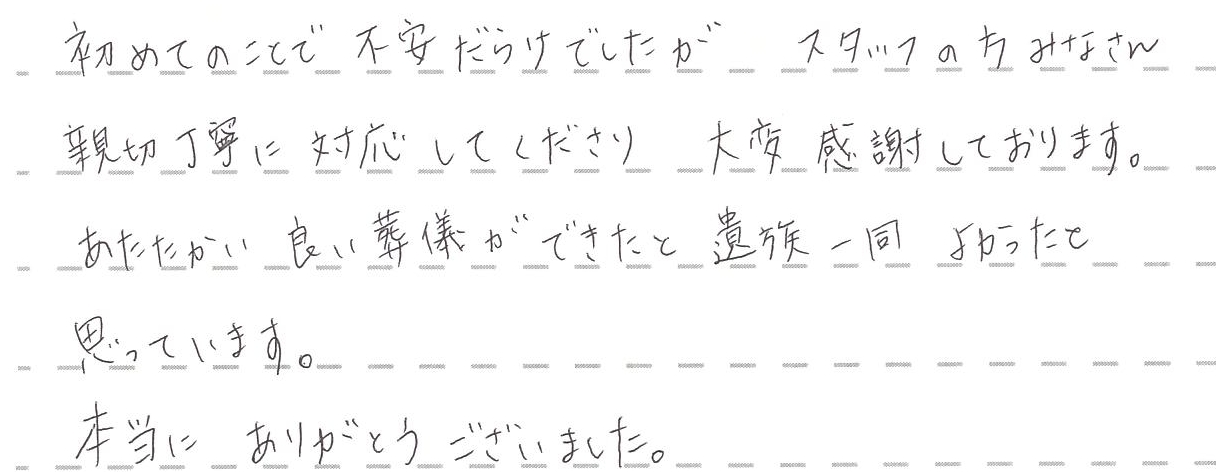 初めてのことで 不安だらけでしたが スタッフの方 みなさん
親切丁寧に 対応してくださり 大変 感謝しております。
あたたかい 良い葬儀ができたと 遺族一同 よかったと
思っています。
本当に ありがとうございました。